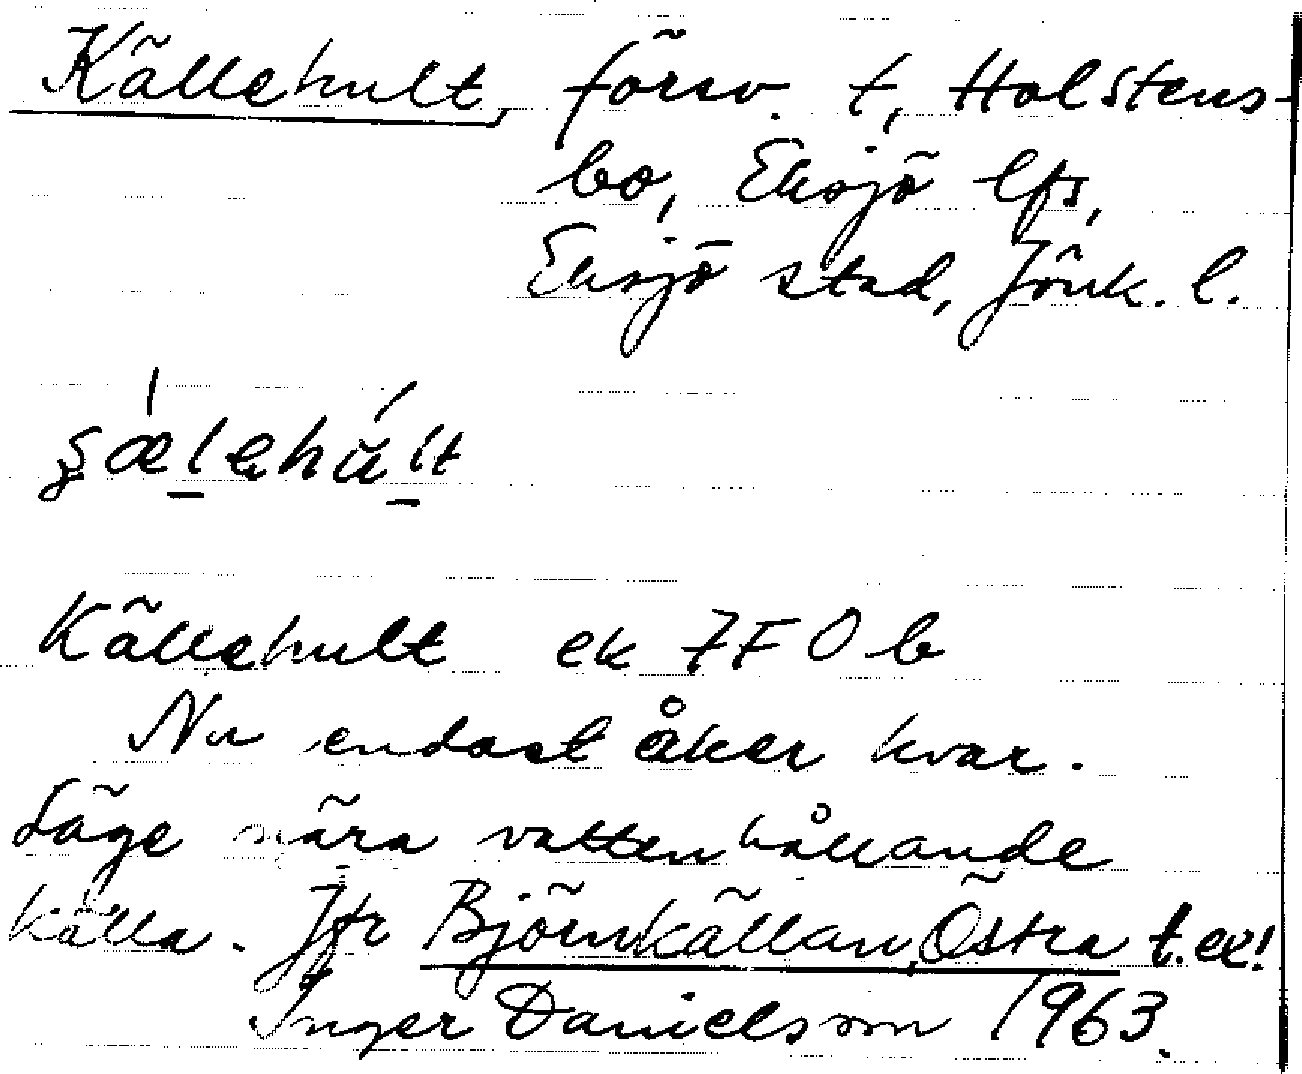 Källehult, försv. t, Holstens-
bo, Eksjö lfs,
Eksjö stad, Jönk. l.
Källehult ek 7F 0b
Nu endast åker kvar.
Läge nära vattenhållande
källa. Jfr Björnkällan, Östra t.ex!
Inger Danielsson 1963.